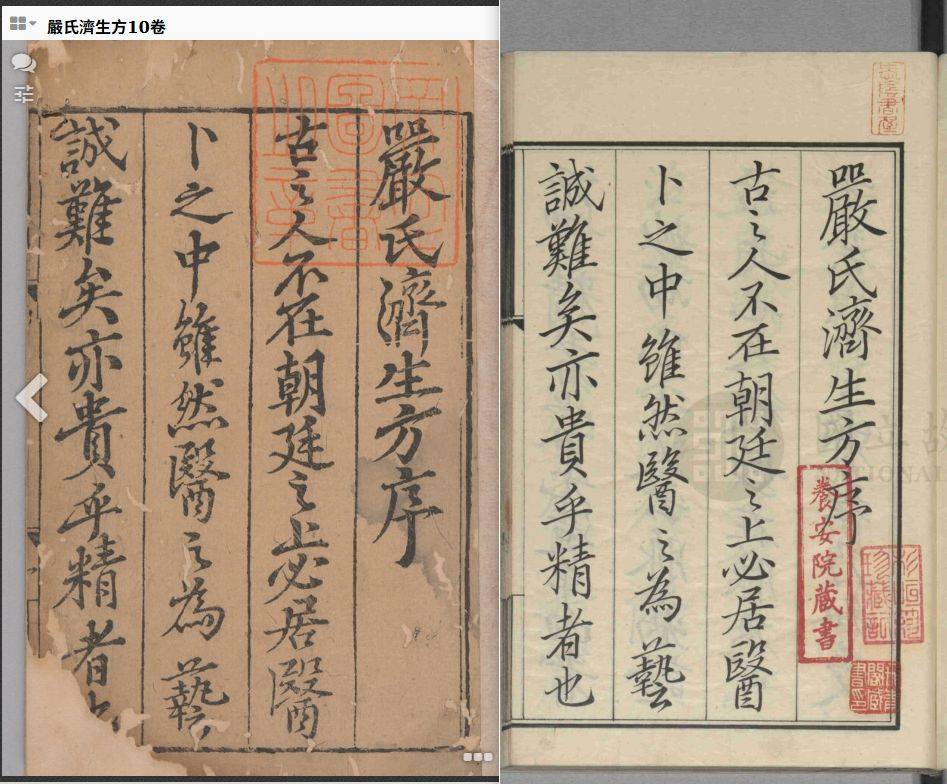 嚴氏濟生方10卷
嚴氏濟生方序
古之人不在朝廷之上必居醫
卜之中雖然醫之為藝
誠難矣亦貴乎精者也
嚴氏濟生方序
古之人不在朝廷之上必居醫
卜之中雖然醫之為藝
誠難矣亦貴乎精者也
養安院藏書
杉垣簃珍藏記
飛青閣藏書印